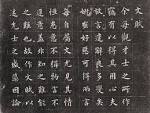 文賦
余每觀才士之所作
竊有以得其用心夫
其放言遣辭良多變矣
妍蚩好惡可得而言
每自屬文尤見其情
恒患意不稱物文不
逮意盖非知之難能
之難也故作文
之盛藻因論